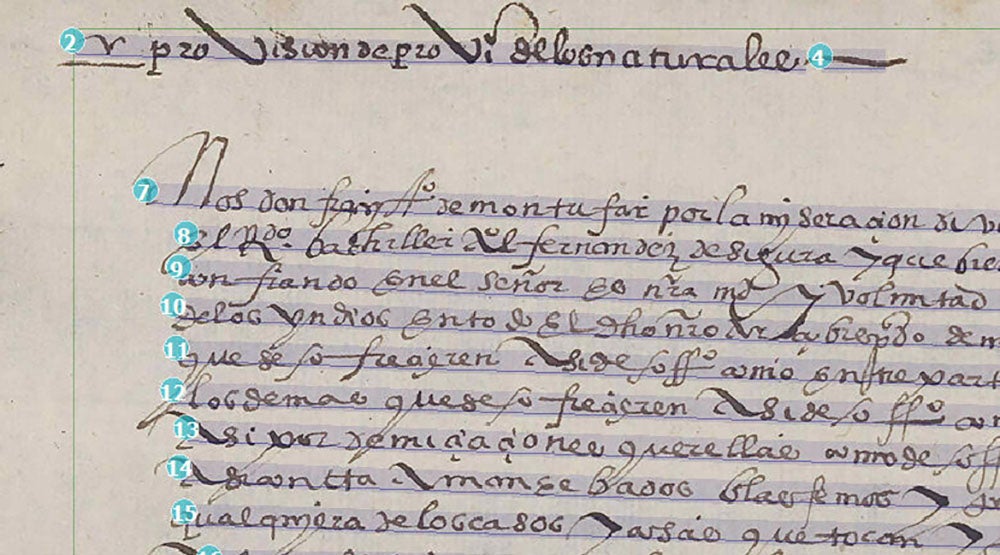 2 v provission de provi^or de los naturales 4
7 Nos don fran^co de montufar por la miseraçion di
8 el R^do bachiller fernandez de sigura y que
9 confiando en el señor es nra md y voluntad
10 de los yndios en todo el dho nro arçobispdo de
11 que se ofreçieren asi de offo como en
12 los demas que se ofreçieren asi de offo
13 asi por denunçiaçiones querellas como de
14 amansebados blasfemos y
15 qualquiera de los casos y cossas que tocan y